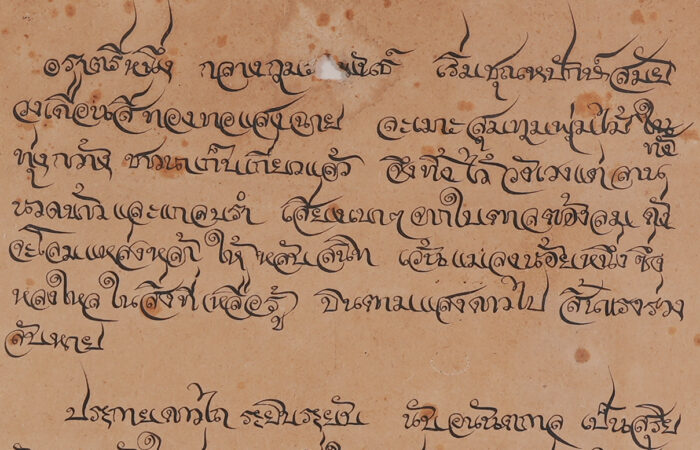 อราตรีหนึ่ง กลางกุมภาพันธ์ เริ่มชุณหปักษ์สมัย
วงเดือนสีทองทอแสงฉาย ละเมาะสุมทุมพุ่มไม้ใน
ทุ่งกว้าง ชาวนาเก็บเกี่ยวแล้ว จึงทิ้งไว้วังเวงแต่ลาน ทั้ง
นวดข้าวและแกลบรำ เสียงเบาๆจากใบตาลต้องลม ดัง
จะโลมแหล่งหล้า ให้หลับสนิท เว้นแมลงน้อยหนึ่งซึ่ง
หลงใหลในสิ่งที่เหลือรู้ บินตามแสงดาวไป สิ้นแรงร่วง
ลับหาย
ประกายดาวไถ ระยิบระยับ นับอนันตกาล เป็นสุริย